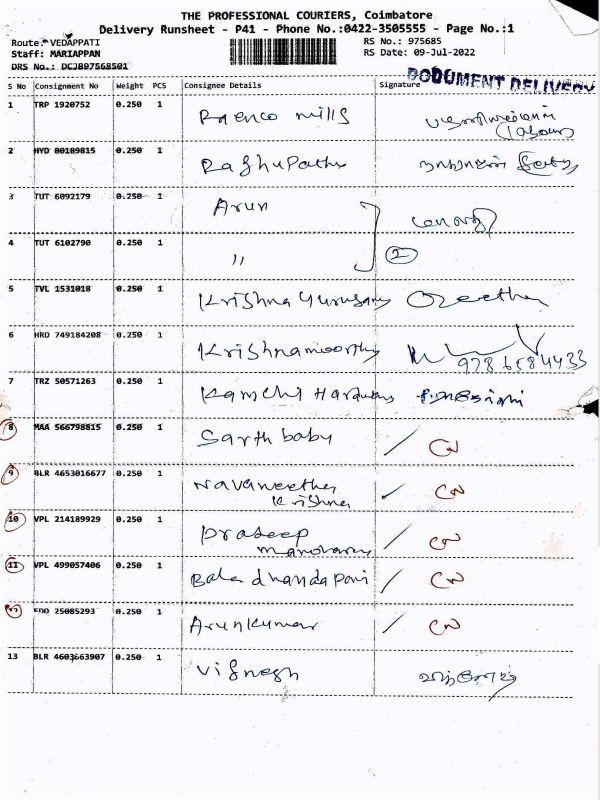 THE PROFESSIONAL COURIERS, Coimbatore
Delivery Runsheet - P41 - Phone No.:0422-3505555 - Page No.:1
Route: VEDAPPATI
Staff: MARIAPPAN
DRS No.: DCJB97568501
RS No.: 975685
RS Date: 09-Jul-2022
DOCUMENT DELIVERY
S No Consignment No Weight PCS Consignee Details Signature
1 TRP 1920752 0.250 1 Raenco mills
(Labour)
2 HYD 80189815 0.250 1 Raghupathy
3 TUT 6092179 0.250 1 Arun
4 TUT 6102790 0.250 1 〃 2
5 TVL 1531018 0.250 1 Krishna Gurusamy
6 HRD 749184208 0.250 1 Krishnamoorthy
9786584433
7 TRZ 50571263 0.250 1 Kamchi Hardwars
8 MAA 566798815 0.250 1 Sarth baby CN
9 BLR 4653016677 0.250 1 Navaneetha CN
Krishna
10 VPL 214189929 0.250 1 Pradeep CN
manoharan
11 VPL 499057406 0.250 1 Bala dhandapani CN
12 EDO 25085293 0.250 1 Arunkumar CN
13 BLR 4603663907 0.250 1 Vignesh